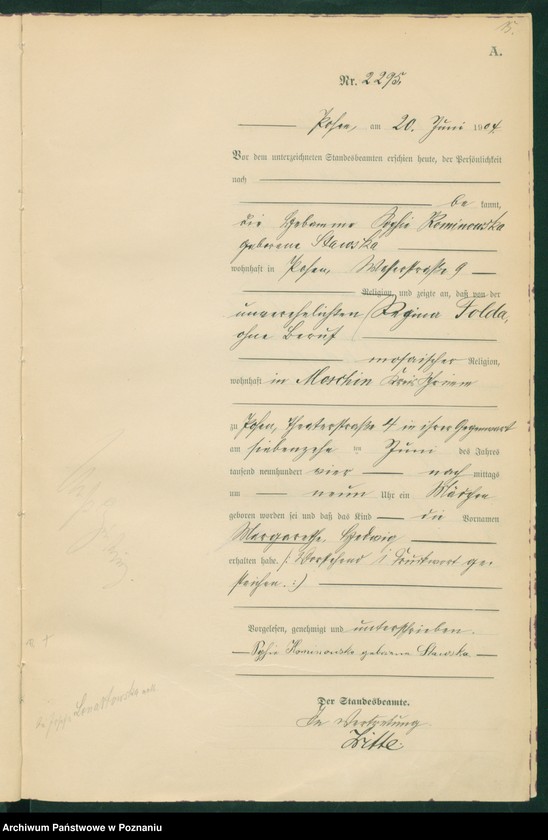 15.
A.
Nr. 2295.
Posen, am 20. Juni 1904
Vor dem unterzeichneten Standesbeamten erschien heute, der Persönlichkeit
nach
be kannt,
die Hebamme Sophie Kominowska
geborene Stawska
wohnhaft in Posen,
Religion, und zeigte an, daß von der
unverehelichten Regina Tolda,
ohne Beruf
mosaischer Religion,
wohnhaft in Moschin Kreis Schrimm
zu Posen, Theaterstraße 4 in ihrer Gegenwart
am siebenzehn ten Juni des Jahres
tausend neunhundert vier nach mittags
um neun Uhr ein Mädchen
geboren worden sei und daß das Kind die Vornamen
Margarethe, Hedwig
erhalten habe. /: Vorstehend 1 Druckwort ge-
strichen. :/
Vorgelesen, genehmigt und unterschrieben.
Sophie Kominowska geborene Stawska
Der Standesbeamte.
In Vertretung
Archiwum Państwowe w Poznaniu